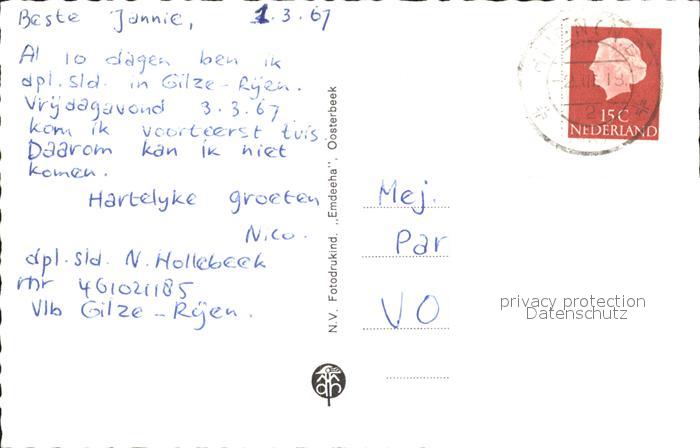 Beste Jannie, 1.3.67
Al 10 dagen ben ik
dpl.sld. in Gilze-Rijen.
Vrijdagavond 3.3.67
kom ik voor 't eerst tuis.
Daarom kan ik niet
komen.
Hartelyke groeten
Nico.
dpl.sld. N. Hollebeek
rnr 461021185
Vlb Gilze-Rijen.
N.V. Fotodrukind. „Emdeeha”, Oosterbeek
Mej.
Par
VO
15C
NEDERLAND
privacy protection
Datenschutz